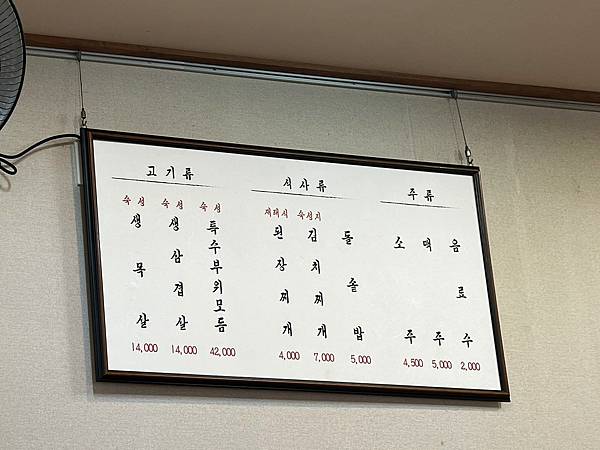 고기류
숙성 생목살 14,000
숙성 생삼겹살 14,000
숙성 특수부위모듬 42,000
식사류
재래식 된장찌개 4,000
숙성지 김치찌개 7,000
돌솥밥 5,000
주류
소주 4,500
맥주 5,000
음료수 2,000